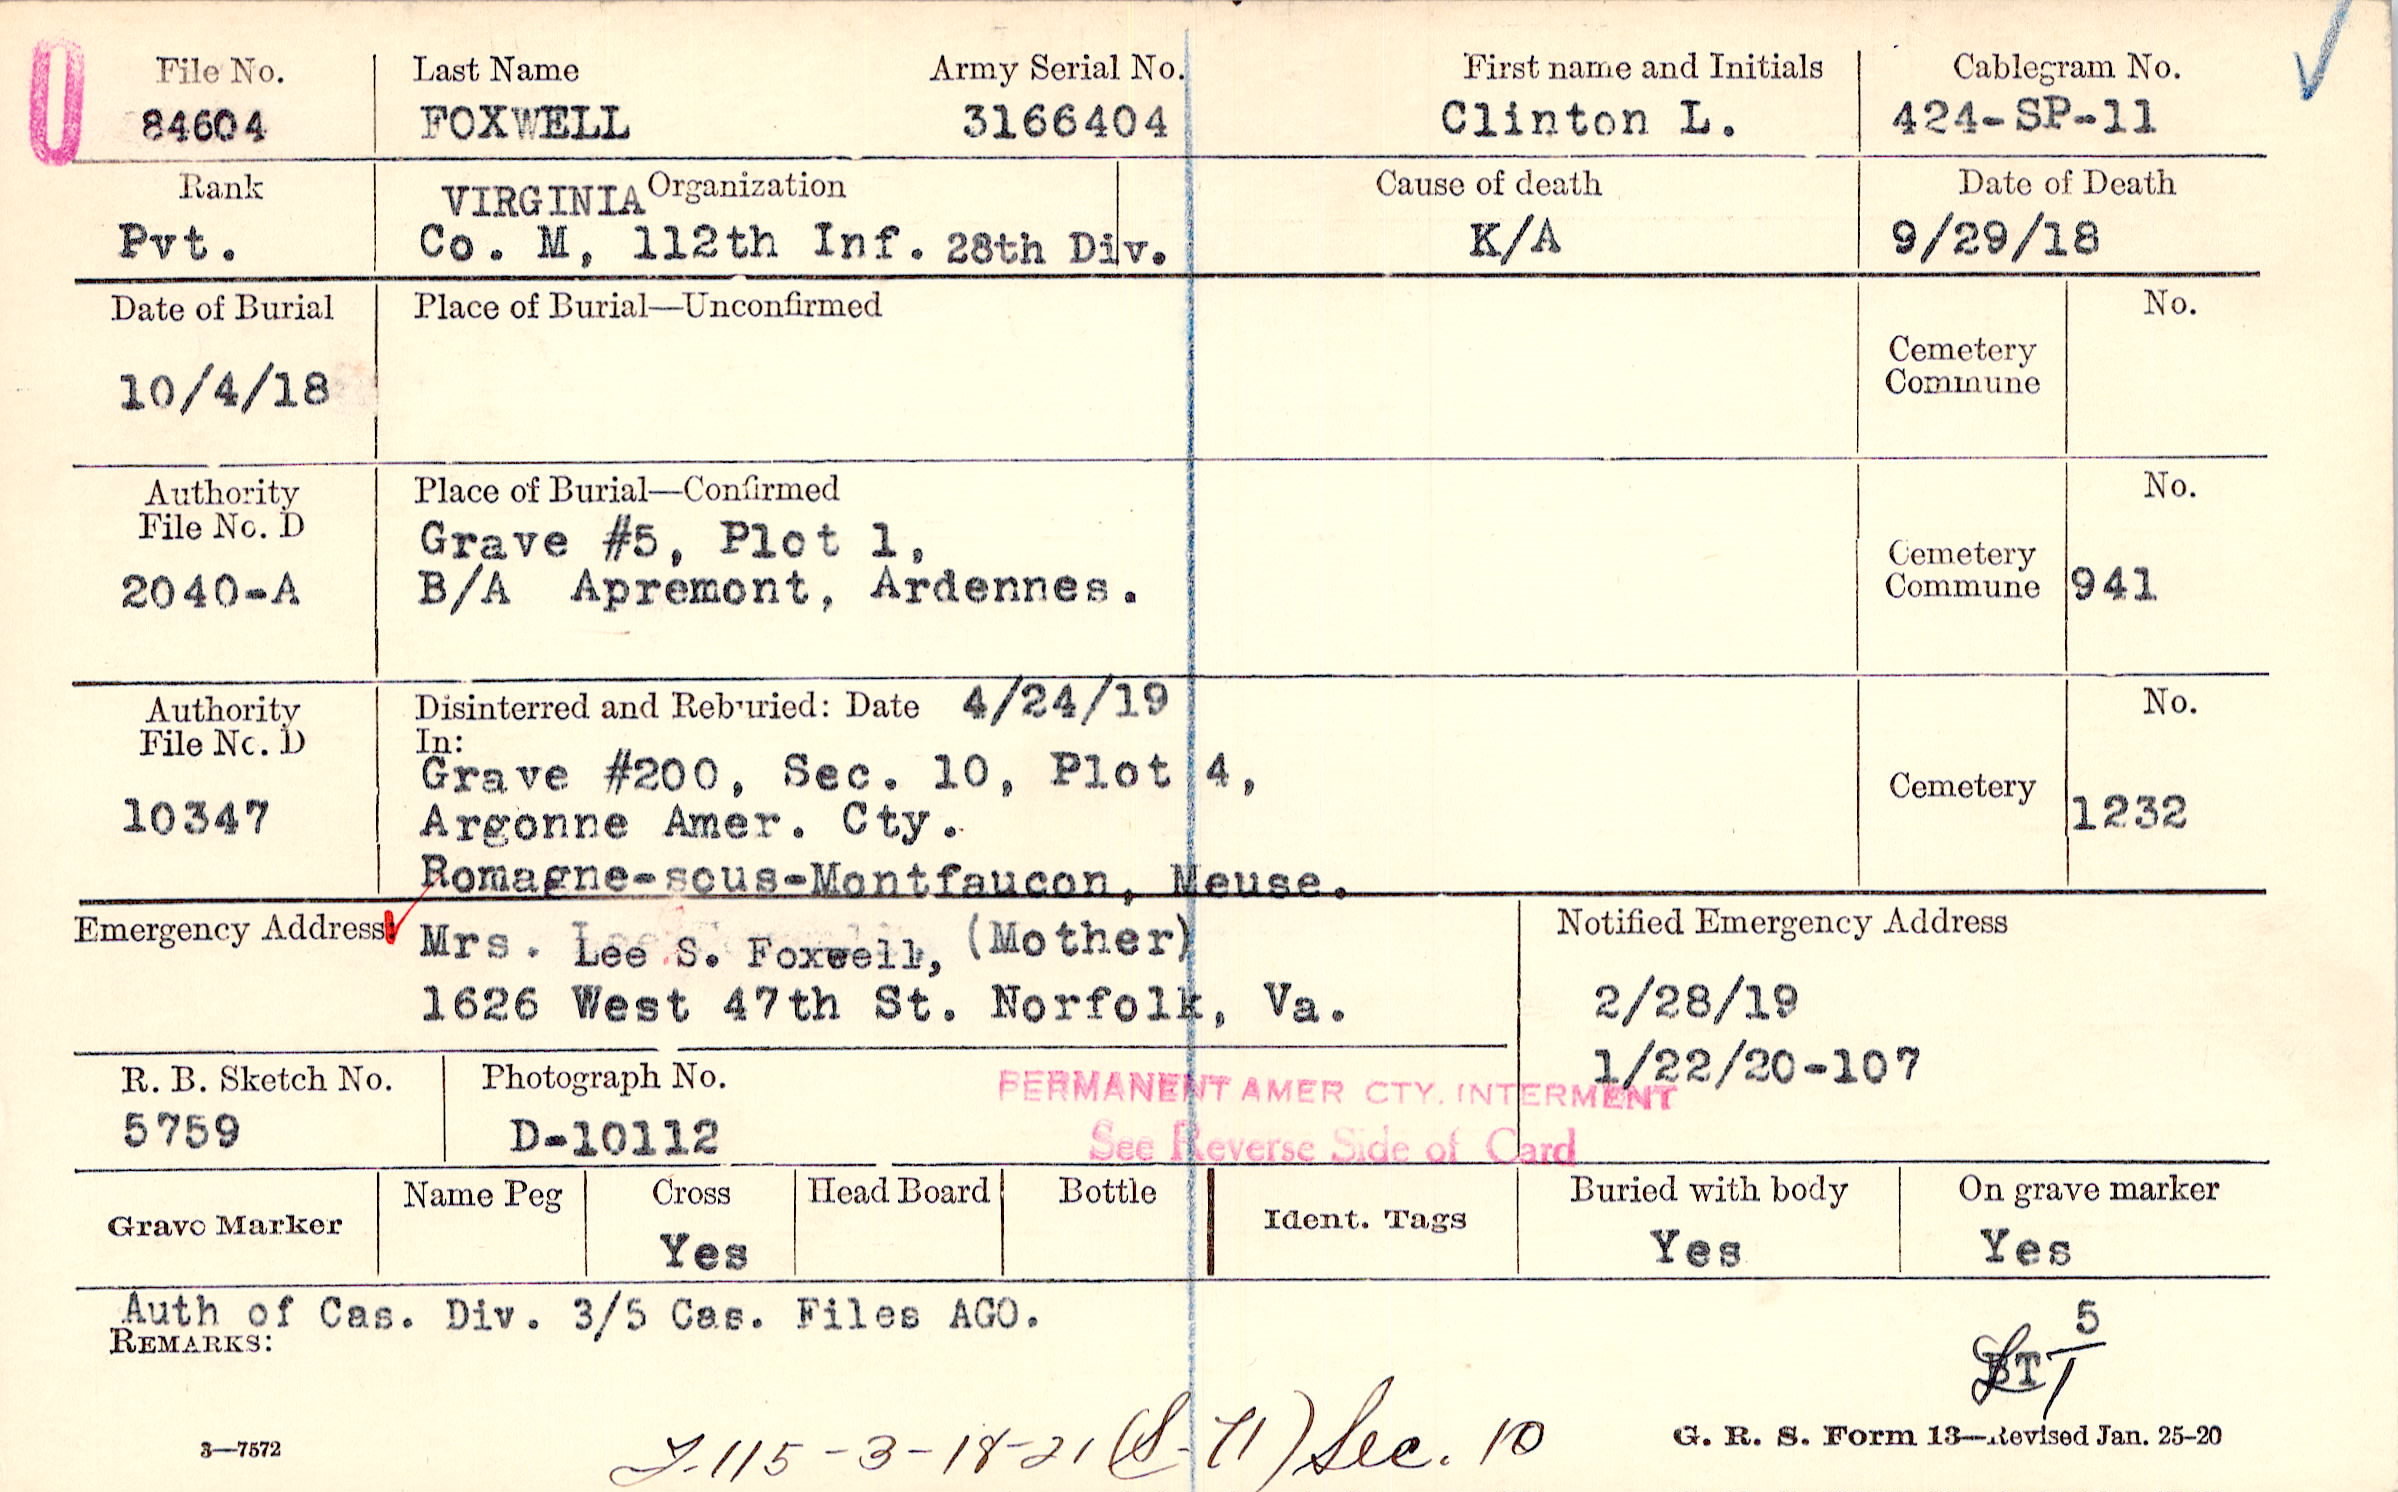 File No. Last Name Army Serial No. First name and Initials Cablegram No.
84604 FOXWELL 3166404 Clinton L. 424-SP-11
Rank VIRGINIA Organization Cause of death Date of Death
Pvt. Co. M, 112th Inf. 28th Div. K/A 9/29/18
Date of Burial Place of Burial—Unconfirmed No.
Cemetery
Commune
10/4/18
Authority Place of Burial—Confirmed No.
File No. D
Grave #5, Plot 1,
Cemetery
2040-A B/A Apremont, Ardennes. Commune 941
Authority Disinterred and Reburied: Date 4/24/19 No.
File No. D In:
Grave #200, Sec. 10, Plot 4,
10347 Argonne Amer. Cty. Cemetery 1232
Romagne-sous-Montfaucon, Meuse.
Emergency Address: Mrs. Lee S. Foxwell, (Mother) Notified Emergency Address
1626 West 47th St. Norfolk, Va. 2/28/19
1/22/20-107
R. B. Sketch No. Photograph No. PERMANENT AMER CTY. INTERMENT
5759 D-10112 See Reverse Side of Card
Grave Marker Name Peg Cross Head Board Bottle Ident. Tags Buried with body On grave marker
Yes Yes Yes
Auth of Cas. Div. 3/5 Cas. Files AGO.
REMARKS:
5
1
115-3-18-21 (S-71) Sec. 10
3—7572 G. R. S. Form 13—Revised Jan. 25-20